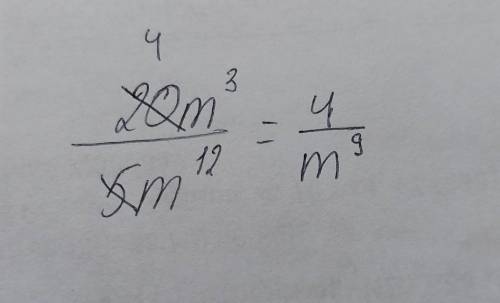 4
20m³ / 5m¹² = 4 / m⁹